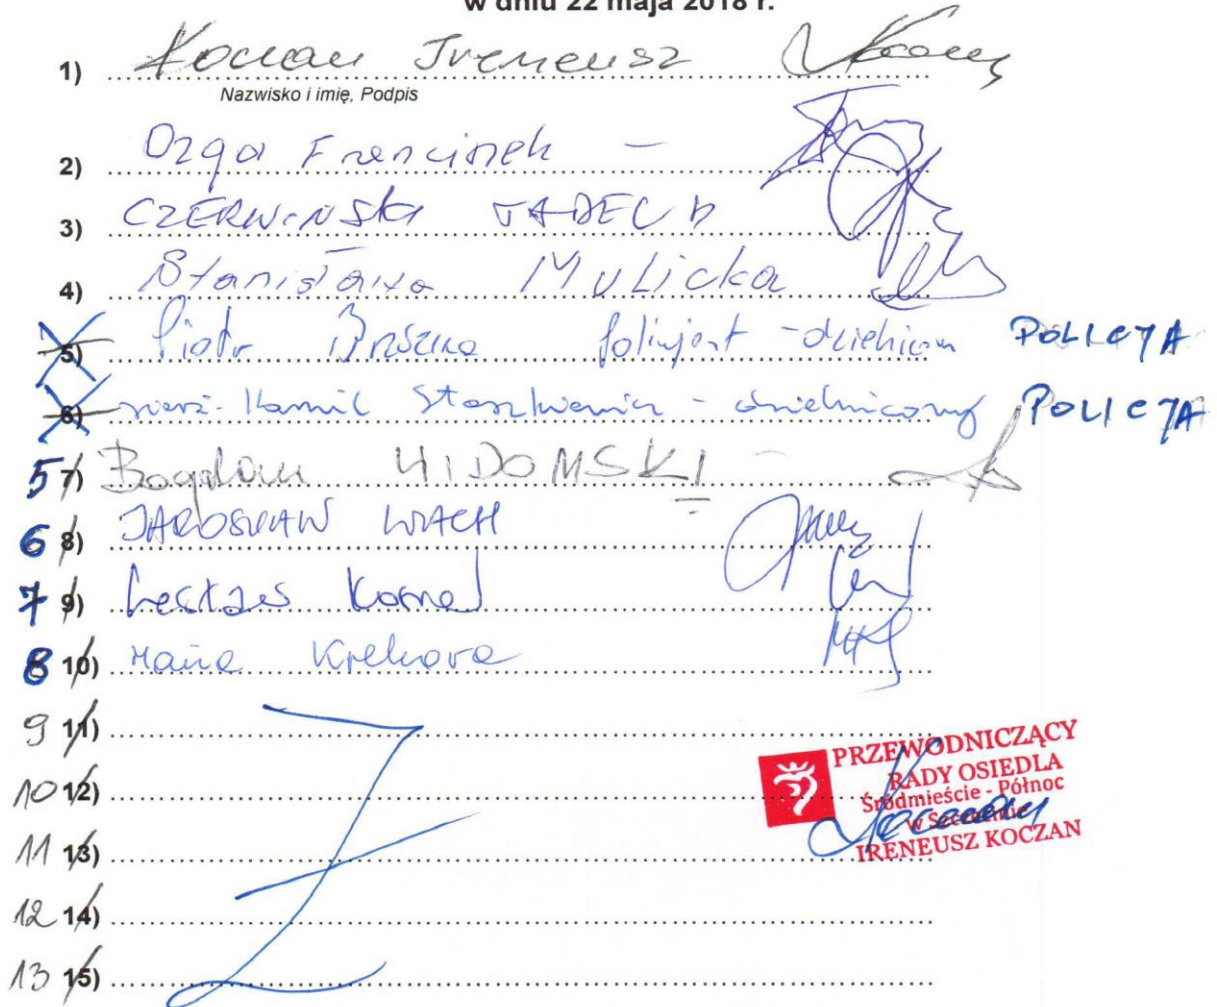 w dniu 22 maja 2018 r.
1) Koczan Ireneusz
Nazwisko i imię, Podpis
2) Ozga Franciszek –
3) CZERWIŃSKI TADEUSZ
4) Stanisława Mulicka
5) Piotr policjant - dzielnicowy POLICJA
6) sierż. Kamil Staszkiewicz - dzielnicowy POLICJA
5 7) Bogdan WIDOMSKI
6 8) JAROSŁAW WACH
7 9) Kornel
8 10) Maria
9 11)
10 12)
11 13)
12 14)
13 15)
PRZEWODNICZĄCY
RADY OSIEDLA
Śródmieście - Północ
w Szczecinie
IRENEUSZ KOCZAN